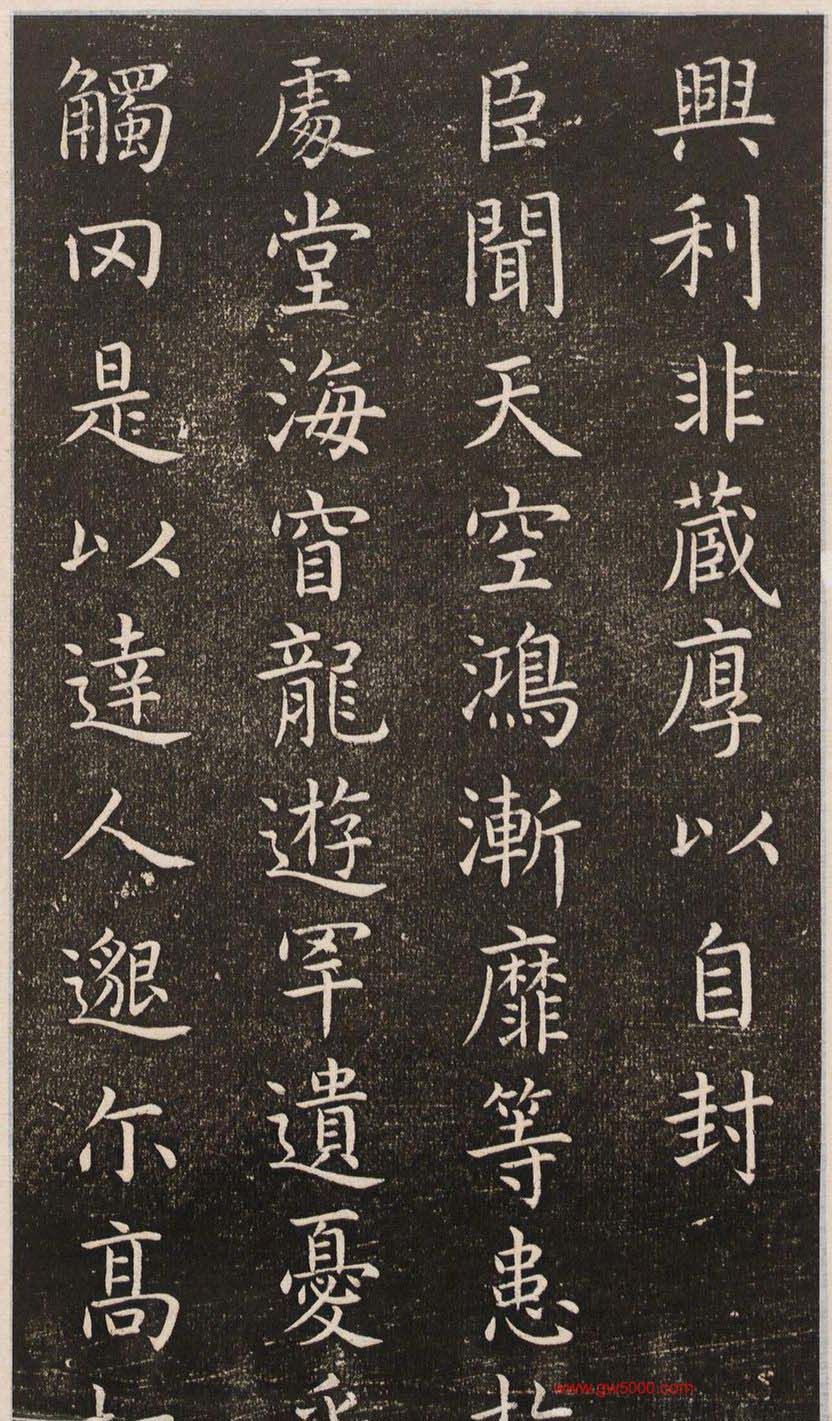 興利非蔵厚以自封
臣聞天空鴻漸靡等患
處堂海窅龍遊罕遺憂
觸罔是以達人邈尔高
www.gw5000.com